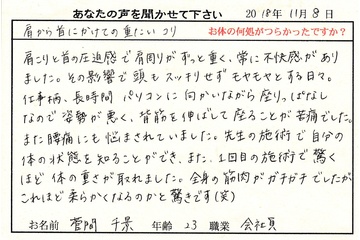 あなたの声を聞かせて下さい 2018年11月8日
お体の何処がつらかったですか?
肩から首にかけての重たいコリ
肩こりと首の圧迫感で肩周りがずっと重く、常に不快感があり
ました。その影響で頭もスッキリせずモヤモヤとする日々。
仕事柄、長時間パソコンに向かいながら座りっぱなし
なので姿勢が悪く、背筋を伸ばして座ることが苦痛でした。
また腰痛にも悩まされていました。先生の施術で自分の
体の状態を知ることができ、また、1回目の施術で驚く
ほど体の重さが取れました。全身の筋肉がガチガチでしたが
これほど柔らかくなるのかと驚きです(笑)
お名前 菅間 千景 年齢 23 職業 会社員